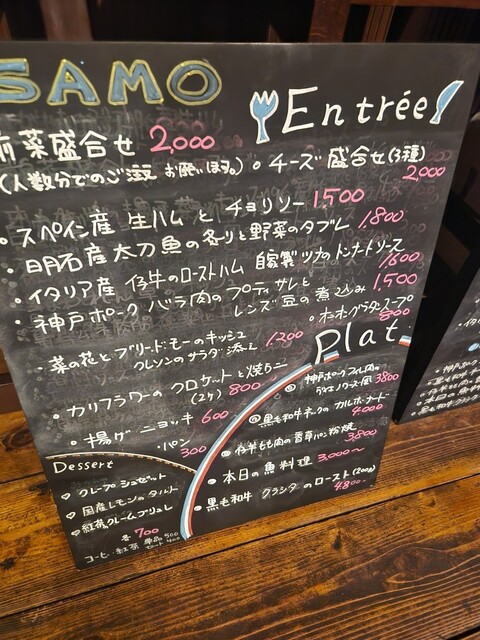 SAMO
Entrée
前菜盛合せ 2,000
(人数分でのご注文 お願いします。)
・チーズ盛合せ(3種)
2,000
・スペイン産 生ハム と チョリソー 1,500
・明石産太刀魚の炙りと野菜のタブレ 1,800
・イタリア産 仔牛のローストハム 自家製ツナのトンナートソース
1,600
・神戸ポーク バラ肉のプティサレと
レンズ豆の煮込み 1,500
・オニオングラタンスープ
800
・菜の花と ブリー・ド・モーのキッシュ
クレソンのサラダ添え 1200
・カリフラワーの クロケット と焼ウニ
(2ヶ) 800
・揚げニョッキ 600
・パン
300
Plat
神戸ポークフィレ肉の
3800
黒毛和牛ネックの カルボナード
4,000
仔羊もも肉の香草パン粉焼
3,800
本日の魚料理 3,000〜
黒毛和牛 クラシタ のロースト(200g)
4,800-
Dessert
クレープシュゼット
国産レモンのタルト
紅茶クレームブリュレ
各 700
コーヒー、紅茶 単品 500
セット 400